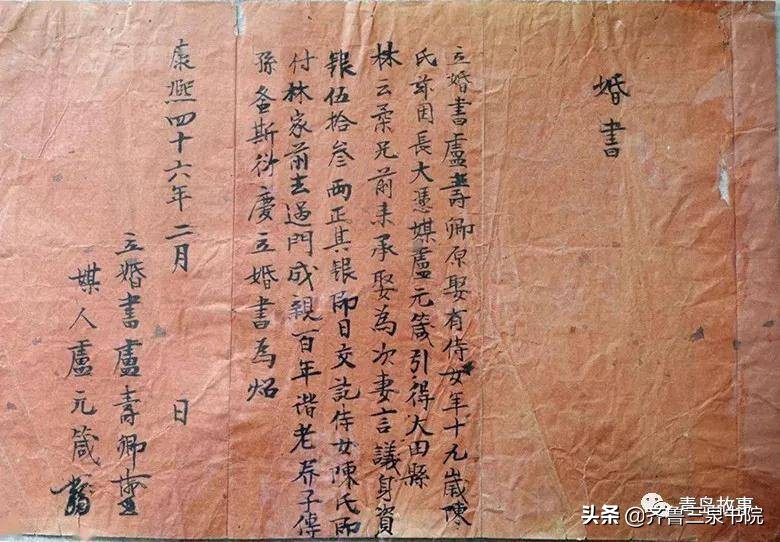 婚書
立婚書盧壽卿原娶有侍女年十九歲陳
氏茲因長大憑媒盧元箴引得大田縣
林云柔兄前來承娶為次妻言議身資
銀伍拾叁両正其銀即日交訖侍女陳氏即
付林家前去過門成親百年谐老养子傳
孫螽斯衍慶立婚書為炤
康熙四十六年二月 日
立婚書盧壽卿
媒人盧元箴
青岛故事
头条 @齐鲁三泉书院